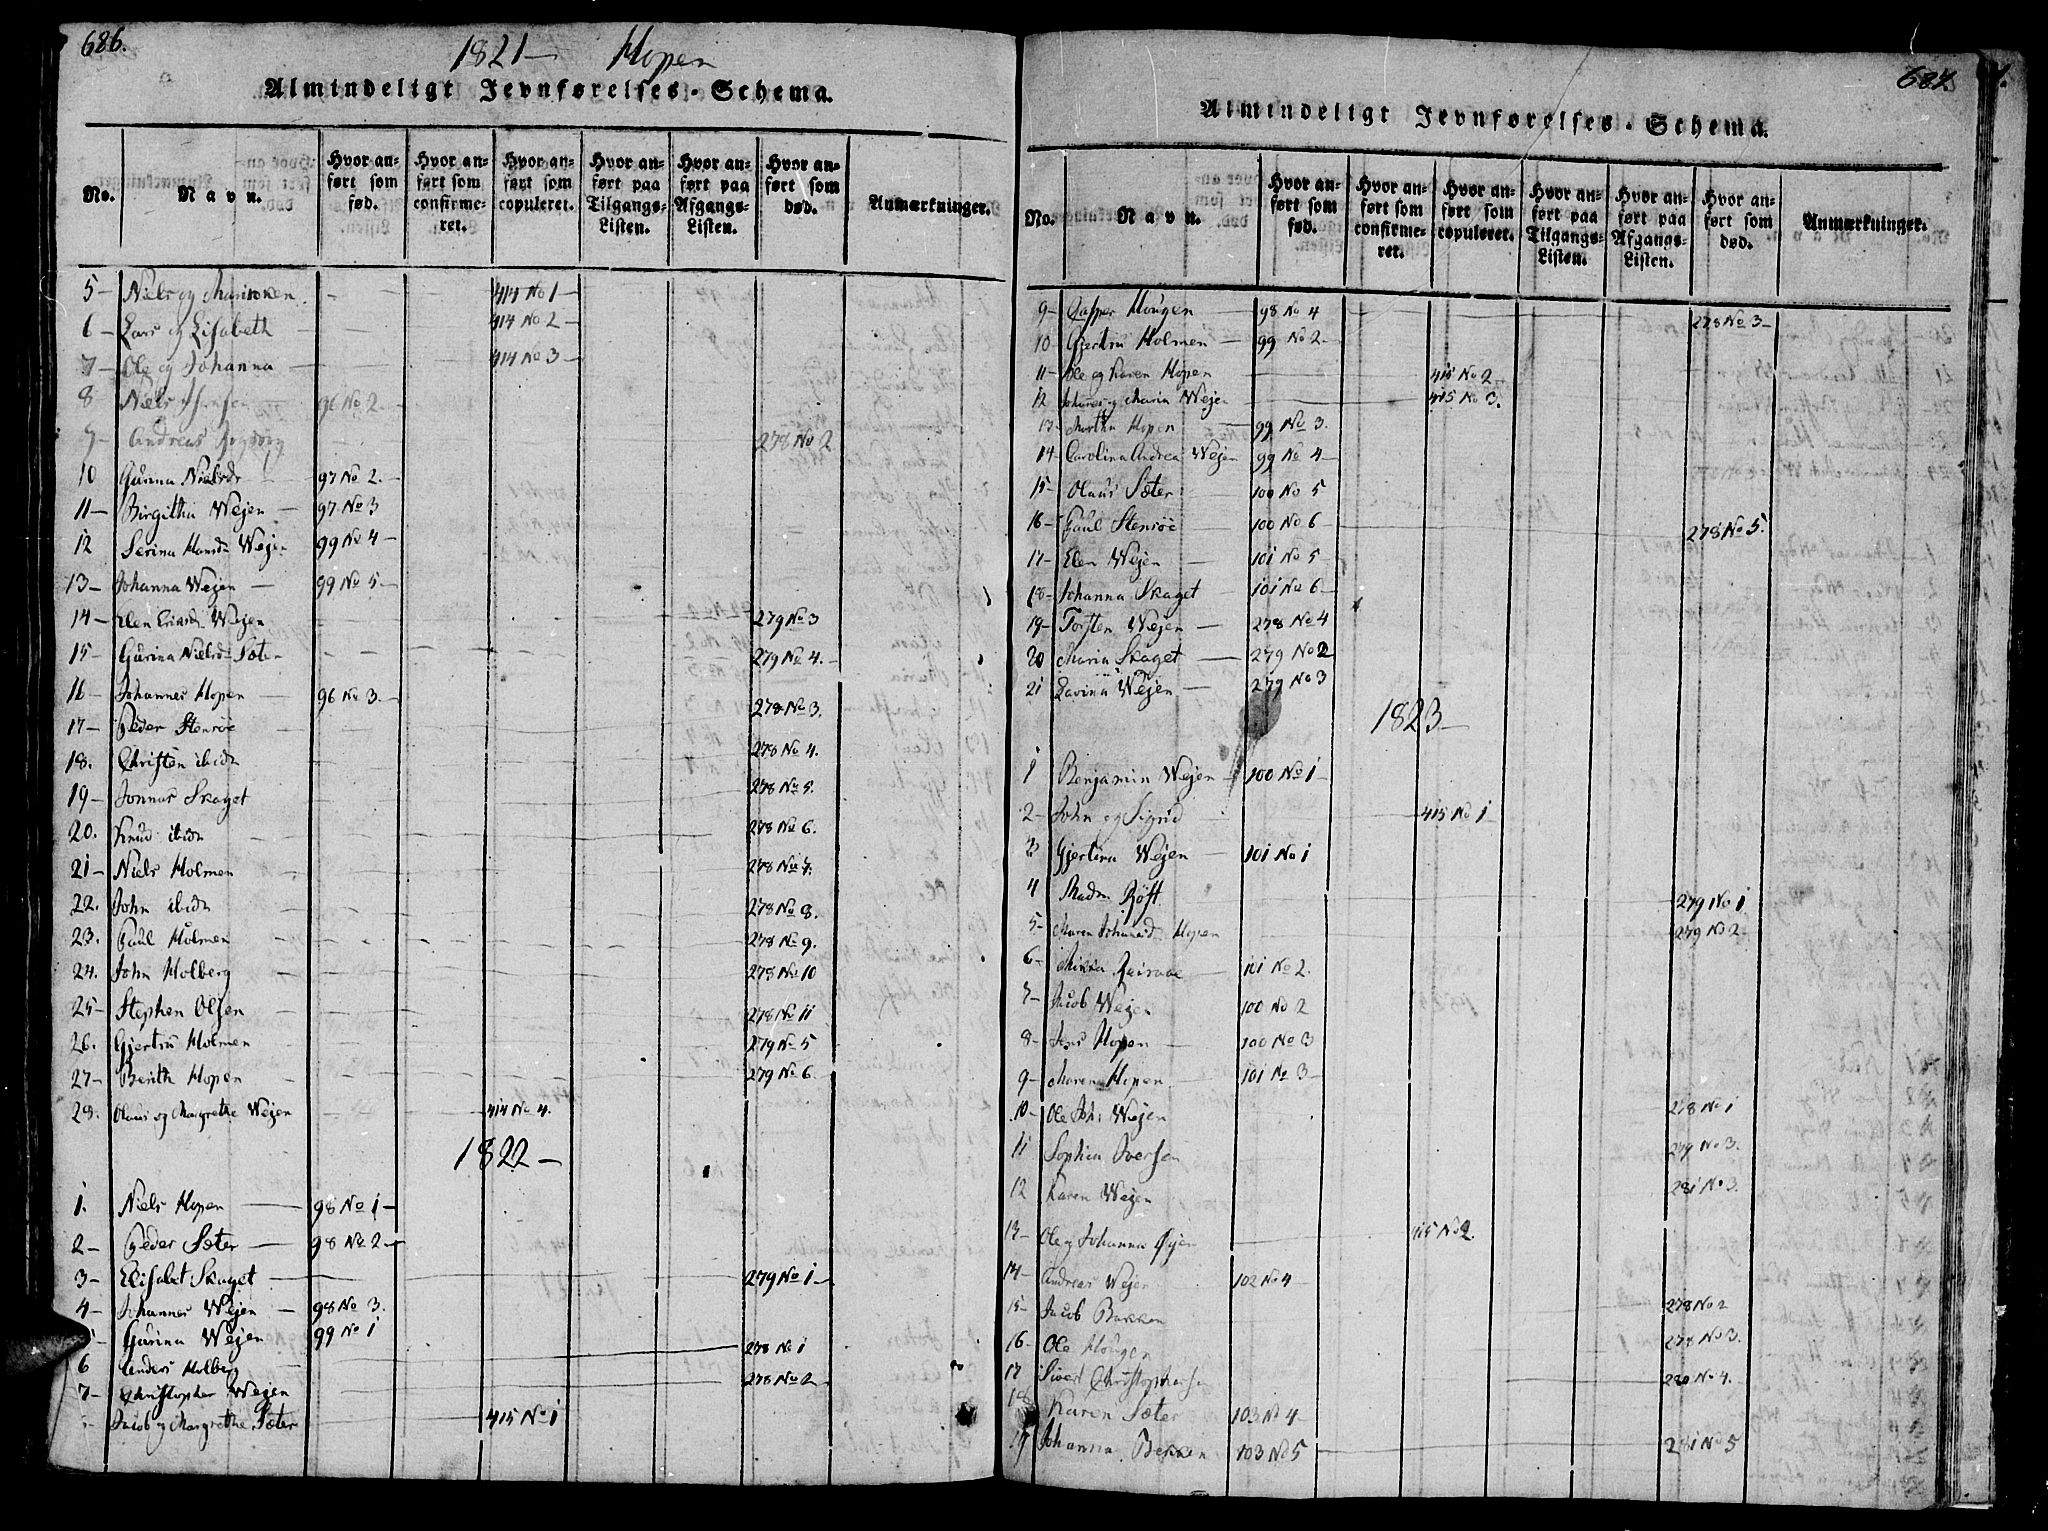 686.
1821— Hopen
Almindeligt Jevnførelses-Schema.
No. Navn. Hvor anført som fød. Hvor anført som confirmeret. Hvor anført som copuleret. Hvor anført paa Tilgangs-Listen. Hvor anført paa Afgangs-Listen. Hvor anført som død. Anmærkninger.
5— Niels og 414 No 1—
6— Lars og Lisabeth 414 No 2—
7— Ole og Johanna — 414 No 3—
8 Niels 96 No 2—
9— Andreas 278 No 2
10 Gurina Nielsdr 97 No 2.—
11— Birgitha Wejen — 97 No 3
12 Serina Hansdr Wejen 99 No 4—
13— Johanna Wejen — 99 No 5—
14— Elen Wejen 279 No 3
15— Gurina Nielsdr Sæter 279 No 4.—
16— Johannes Hopen — 96 No 3.—
17— Peder Stenröe 278 No 3.
18. Christen ibidn 278 No 4.
19— Jonnas Skaget 278 No 5.
20. Knud ibidn 278 No 6.
21— Niels Holmen 278 No 7.
22. John ibidn 278 No 8.
23. Paul Holmen 278 No 9.
24. John Holberg 278 No 10
25— Stephen Olsen 278 No 11
26. Gjertru Holmen 279 No 5
27— Berith Hopen 279 No 6.
28. Olaus og Margrethe Wejen 414 No 4.
1822—
1. Niels Hopen — 98 No 1—
2— Peder Sæter — 98 No 2—
3— Elisabet Skaget — 279 No 1—
4— Johannes Wejen — 98 No 3.
Gurina Wejen 99 No 1
6 Anders Holberg 278 No 1
7— Christopher Wejen 278 No 2—
Jacob og Margrethe Sæter 415 No 1
687.
Almindeligt Jevnførelses-Schema.
No. Navn. Hvor anført som fød. Hvor anført som confirmeret. Hvor anført som copuleret. Hvor anført paa Tilgangs-Listen. Hvor anført paa Afgangs-Listen. Hvor anført som død. Anmærkninger.
9— Casper Hougen — 98 No 4 278 No 3—
10— Gjertru Holmen — 99 No 2—
11— Ole og Karen Hopen 415 No 2
12 Johannes og Maria Wejen 415 No 3.
13— Martha Hopen — 99 No 3.
14 Carolina Andrea Wejen 99 No 4—
15— Olaus Sæter 100 No 5
16— Paul Stenröe — 100 No 6— 278 No 5.
17— Elen Wejen — 101 No 5
18— Johanna Skaget — 101 No 6—
19— Torsten Wejen — 278 No 4
20 Maria Skaget — 279 No 2
21 Lavina Wejen — 279 No 3
1823—
1 Benjamin Wejen — 100 No 1—
2— John og Sigrid 415 No 1—
3 Gjertina Wejen — 101 No 1
4 Madm 279 No 1
5— Maren Hopen 279 No 2—
6— 101 No 2.
7— Jacob Wejen 100 No 2
8— Jens Hopen — 100 No 3
9— Maren Hopen — 101 No 3—
10— Ole Joh: Wejen 278 No 1
11 Sophia Iversen 279 No 3.
12 Karen Wejen 281 No 3.
13— Ole og Johanna 415 No 2.
14— Andreas Wejen 102 No 4—
15— Jacob Bakken 278 No 2
16— Ole Hougen 278 No 3.
17 Sivert Christophersen 280 No 4.
18 Karen Sæter 103 No 4—
19 Johanna Bekken 103 No 5 281 No 5